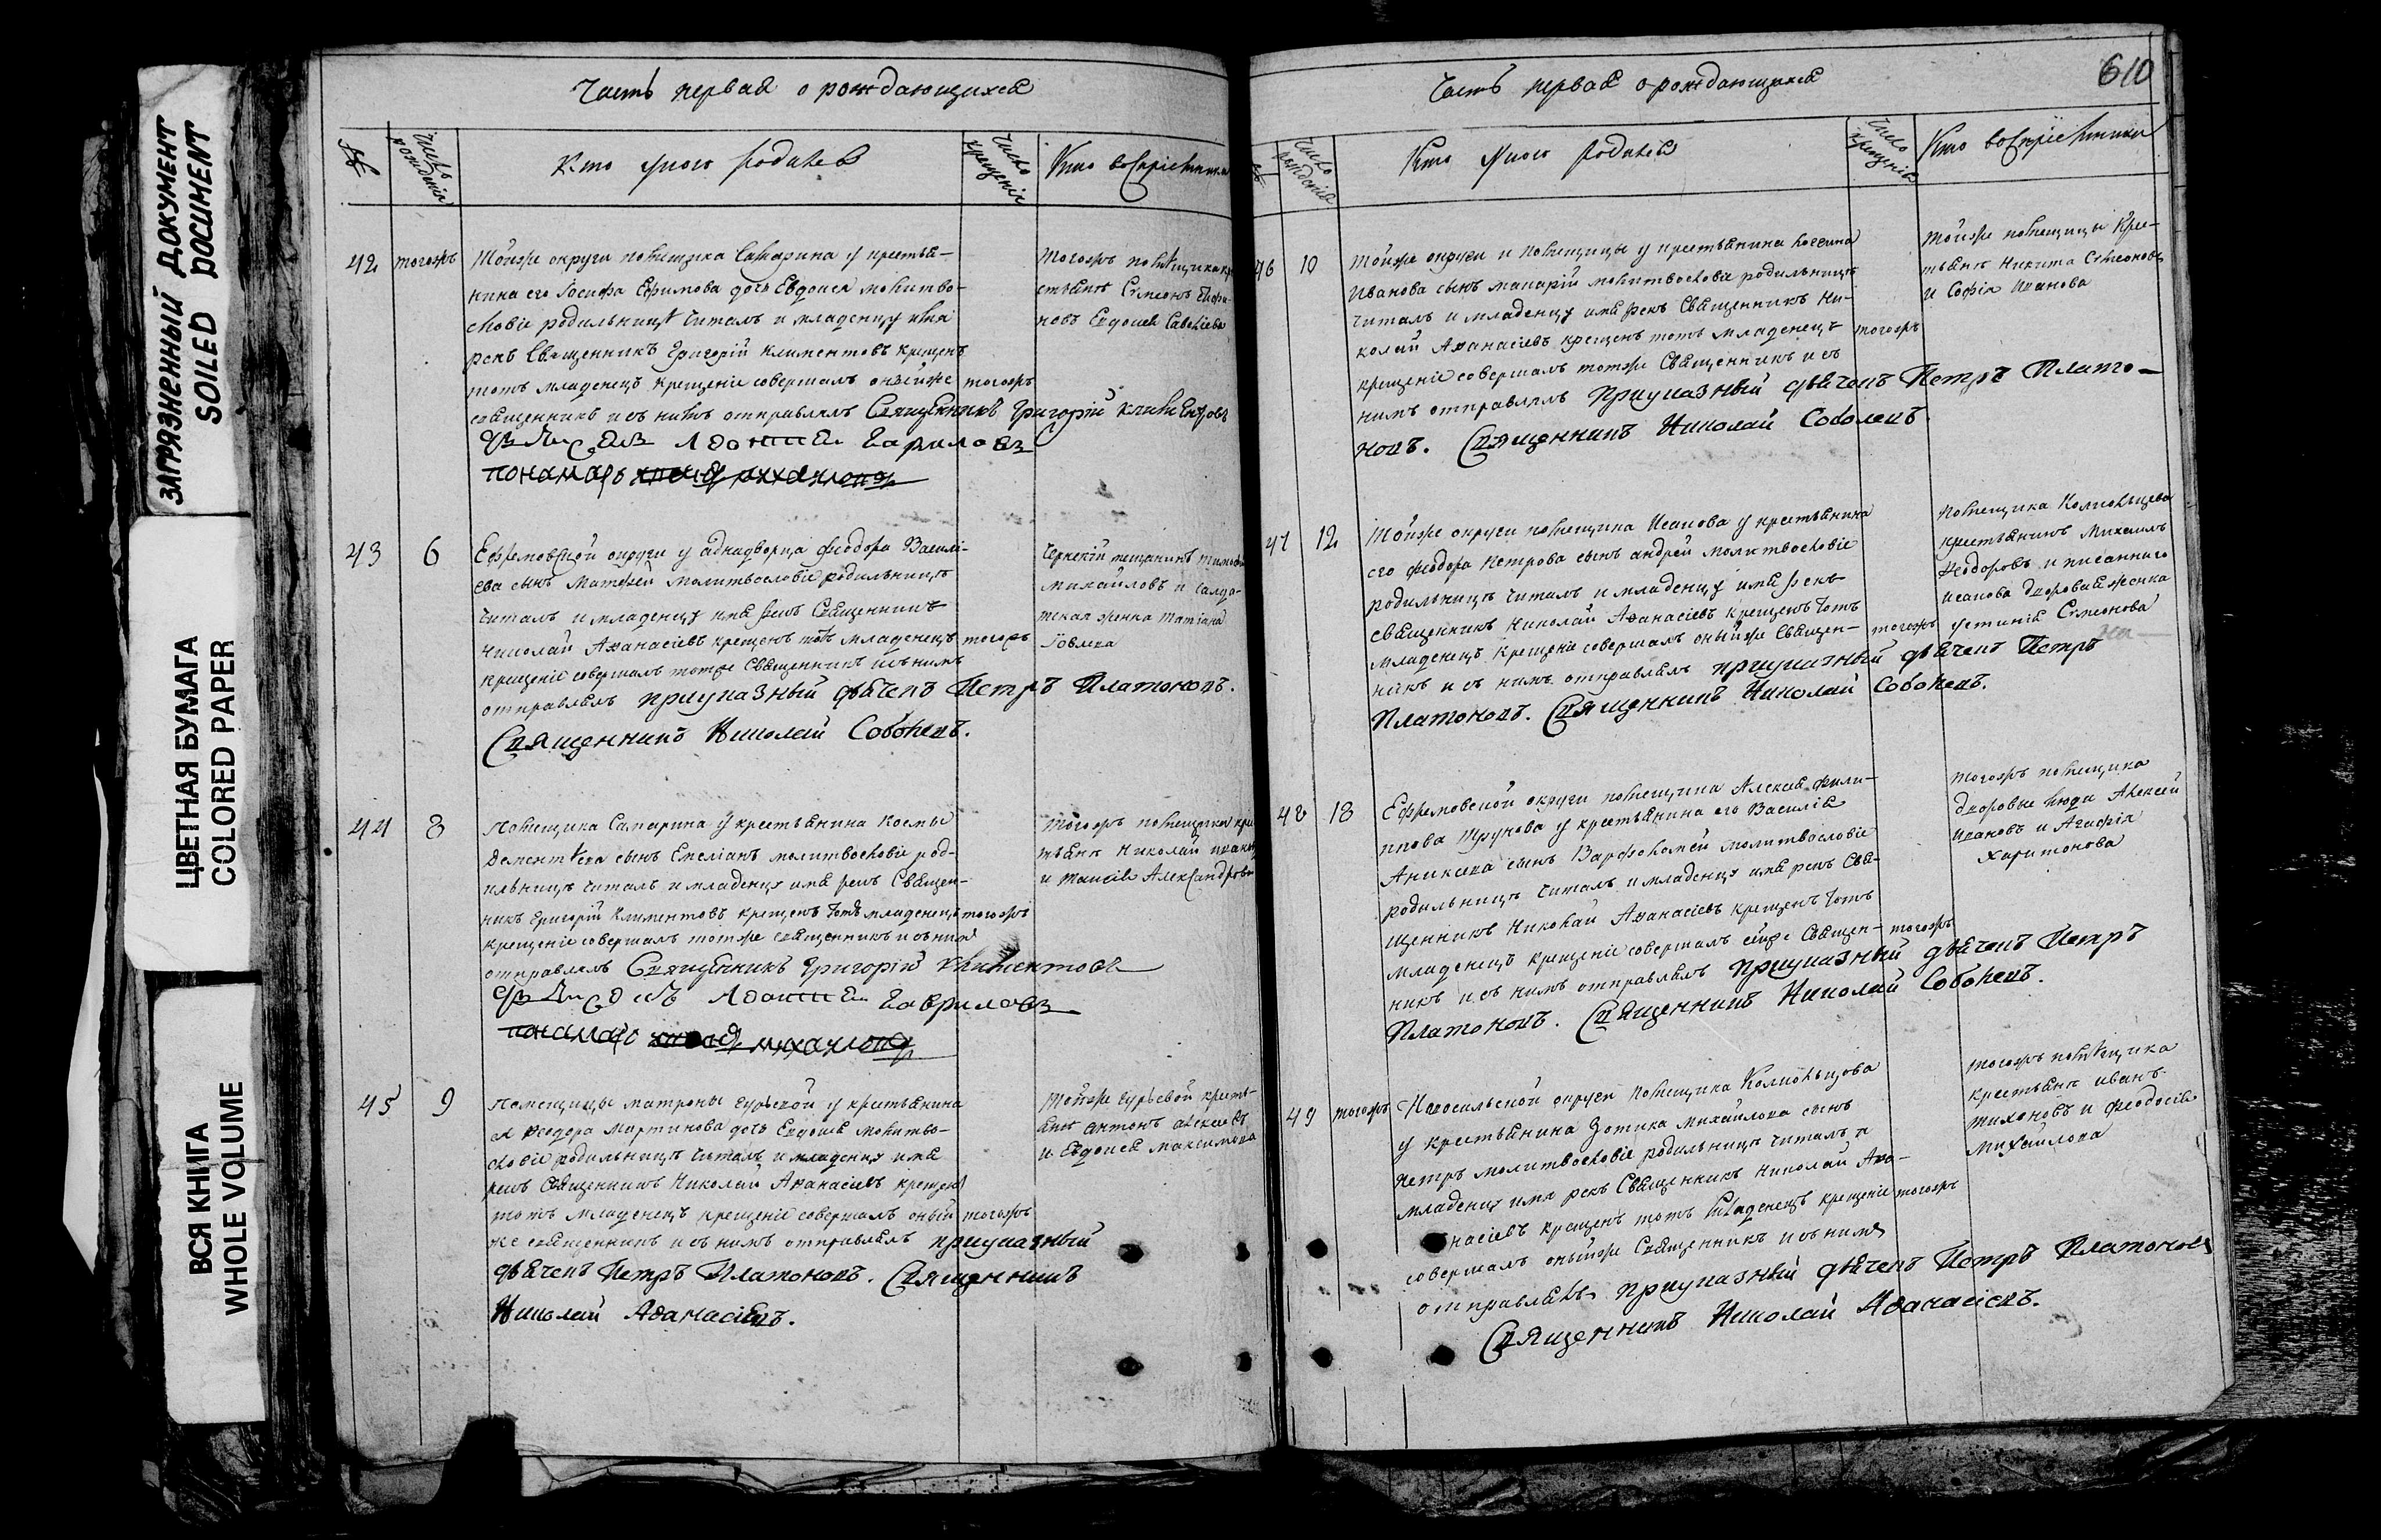 ЗАГРЯЗНЕННЫЙ ДОКУМЕНТ
SOILED DOCUMENT
ЦВЕТНАЯ БУМАГА
COLORED PAPER
ВСЯ КНИГА
WHOLE VOLUME
Часть первая о рождающихся
№
Число рожденія
Кто у кого родился
Число крещенія
Кто воспріемники
42 тогожъ
Тойже округи помещика Самарина у крестья-
нина его Иосифа Ефимова дочь Евдокея молитво-
словіе родильницѣ читалъ и младенцу имя
рекъ Священникъ Григорій Климентовъ крещенъ
тотъ младенецъ крещеніе совершалъ онойже тогожъ
священникъ и съ нимъ отправлялъ Священникъ Григорій Климентовъ
Гавриловъ
понамарь
Тогожъ помѣщика кре-
стьянѣ Симеонъ
новъ Евдокея Савельева
43 6
Ефремовской округи у аднадворца Феодора Василі-
ева сынъ Матфей молитвословіе родильницѣ
читалъ и младенцу имя рекъ Священникъ
Николай Аѳанасіевъ крещенъ тотъ младенецъ тогожъ
крещеніе совершалъ тотже Священникъ и съ нимъ
отправлялъ приуказный дьячекъ Петръ Платоновъ.
Священникъ Николай Соболевъ.
Чернской мещанинъ
Михайловъ и салда-
тская женка Татіана
Іовлева
44 8
Помещика Самарина у крестьянина Космы
Дементѣева сынъ Емеліанъ молитвословіе род-
ильницѣ читалъ и младенцу имя рекъ Священ-
никъ Григорій Климентовъ крещенъ тотъ младенецъ тогожъ
крещеніе совершалъ тотже священникъ и съ нимъ
отправлялъ Священникъ Григорій Климентовъ
Гавриловъ
понамарь
Тогожъ помещика кре-
стьянѣ Николай
и Таисія Александрова
45 9
Помещицы Матроны Гурьевой у крестьянина
ея Феодора Мартинова дочь Евдокея молитво-
словіе родильницѣ читалъ и младенцу имя
рекъ Священникъ Николай Аѳанасіевъ крещенъ
тотъ младенецъ крещеніе совершалъ оный тогожъ
же священникъ и съ нимъ отправлялъ приуказный
дьячекъ Петръ Платоновъ. Священникъ
Николай Аѳанасіевъ.
Тойже Гурьевой кресть-
янѣ Антонъ Алексеевъ
и Евдокея Максимова
610
Часть первая о рождающихся
№
Число рожденія
Кто у кого родился
Число крещенія
Кто воспріемники
46 10
Тойже округи и помещицы у крестьянина
Иванова сынъ Макарій молитвословіе родильницѣ
читалъ и младенцу имя рекъ Священникъ Ни-
колай Аѳанасіевъ крещенъ тотъ младенецъ тогожъ
крещеніе совершалъ тотже Священникъ и съ
нимъ отправлялъ приуказный дьячекъ Петръ Плато-
новъ. Священникъ Николай Соболевъ.
Тойже помещицы кре-
стьянѣ Никита Симеоновъ
и Софія Иванова
47 12
Тойже округи помещика Исакова у крестьянина
его Феодора Петрова сынъ Андрей молитвословіе
родильницѣ читалъ и младенцу имя рекъ
священникъ Николай Аѳанасіевъ крещенъ тотъ
младенецъ крещеніе совершалъ оныйже Священ- тогожъ
никъ и съ нимъ отправлялъ приуказный дьячекъ Петръ
Платоновъ. Священникъ Николай Соболевъ.
помещика Колиольцова
крестьянинъ Михаилъ
Феодоровъ и писаннаго
Исакова дворовая женка
Устинія Симеонова
48 18
Ефремовской округи помещика Алексея Фили-
ппова Трунова у крестьянина его Василія
Аникеева сынъ Варфоломей молитвословіе
родильницѣ читалъ и младенцу имя рекъ Свя-
щенникъ Николай Аѳанасіевъ крещенъ тотъ
младенецъ крещеніе совершалъ сейже Священ- тогожъ
никъ и съ нимъ отправлялъ приуказный дьячекъ Петръ
Платоновъ. Священникъ Николай Соболевъ.
Тогожъ помещика
дворовые люди Алексей
Ивановъ и Агафія
Харитонова
49 тогожъ
Новосильской округи помещика Колиольцова
у крестьянина Зотика Михайлова сынъ
Петръ молитвословіе родильницѣ читалъ и
младенцу имя рекъ Священникъ Николай Аѳа-
насіевъ крещенъ тотъ младенецъ крещеніе тогожъ
совершалъ оныйже Священникъ и съ нимъ
отправлялъ приуказный дьячекъ Петръ Платоновъ
Священникъ Николай Аѳанасіевъ.
Тогожъ помѣщика
крестьянѣ Иванъ
Тихоновъ и Феодосія
Михайлова